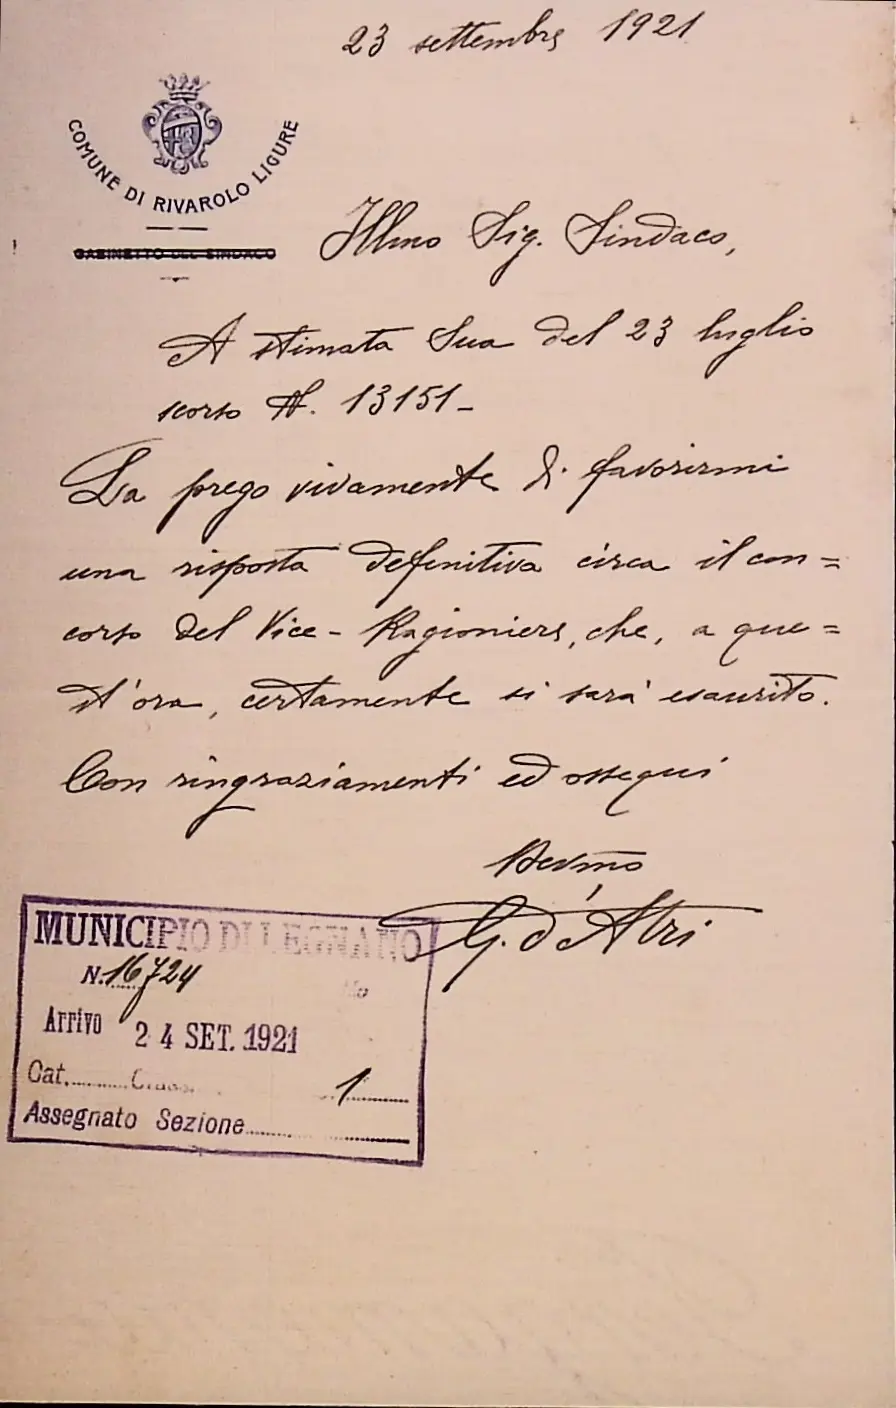 23 settembre 1921
COMUNE DI RIVAROLO LIGURE
GABINETTO DEL SINDACO
Illmo Sig. Sindaco,
A stimata Sua del 23 luglio
scorso N. 13151-
La prego vivamente di favorirmi
una risposta definitiva circa il con=
corso del Vice-Ragioniere, che, a que=
st'ora, certamente si sarà esaurito.
Con ringraziamenti ed ossequi
Devmo
G. d'Atri
MUNICIPIO DI LEGNANO
N. 16724
Arrivo 24 SET. 1921
Cat. Class. 1
Assegnato Sezione